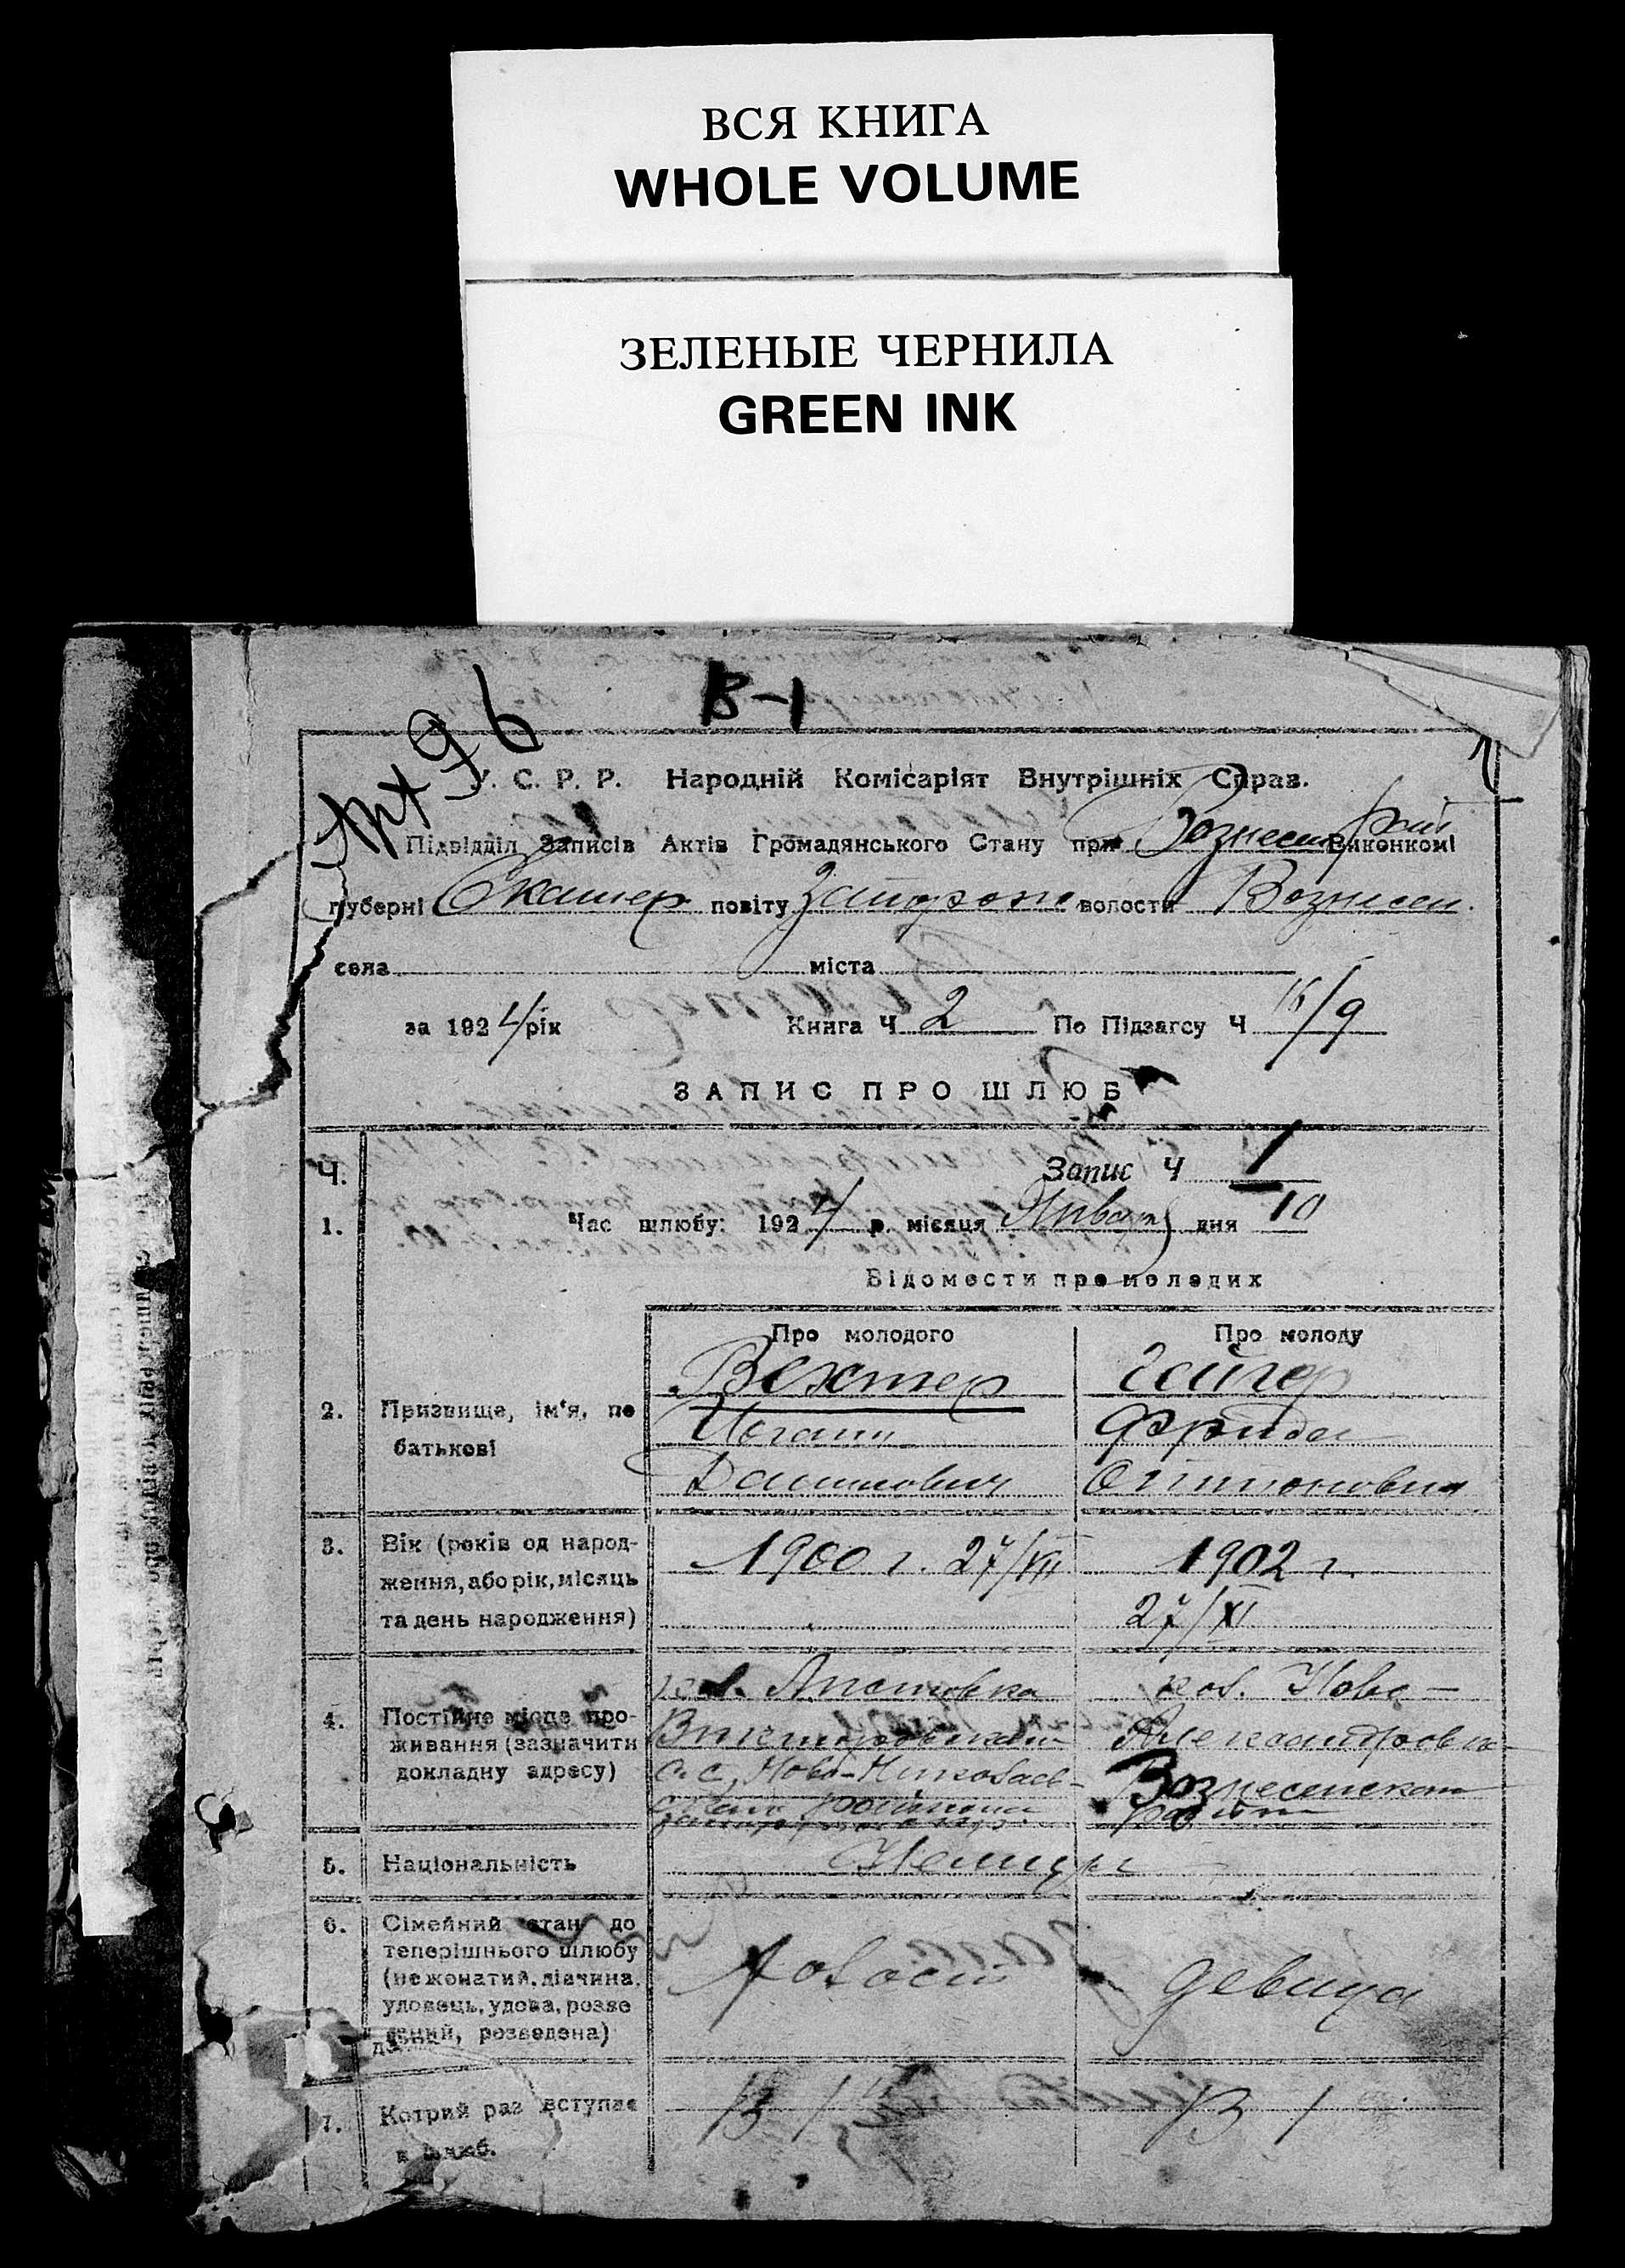 ВСЯ КНИГА
WHOLE VOLUME
ЗЕЛЕНЫЕ ЧЕРНИЛА
GREEN INK
В-1
96
У. С. Р. Р. Народній Комісаріят Внутрішніх Справ.
Підвідділ Записів Актів Громадянського Стану при Вознесен рай Виконкомі
губерні Екатер повіту Запорож волости Вознесен.
села міста
за 1924 рік Книга Ч 2 По Підзагсу Ч /9
ЗАПИС ПРО ШЛЮБ
Ч. Запис Ч 1
1. Час шлюбу: 1924 р. місяця Января дня 10
Відомости про молодих
Про молодого Про молоду
Вехтер Гейгер
2. Призвище, ім'я, по батькові
Иоганн Фрида
Оттоновна
3. Вік (років од народження, або рік, місяць та день народження)
1900 г. 27/VII 1902 г.
27/XI
4. Постійне місце проживання (зазначити докладну адресу)
кол. кол. Ново-
Александровка
с.с. Ново-Николаев- Вознесенском
района
5. Національність Немцы
6. Сімейний стан до
теперішнього шлюбу
(нежонатий, дівчина,
удовець, удова, розве
дений, розведена)
Холост девица
7. Котрий раз вступає
в шлюб.
В 1 В 1